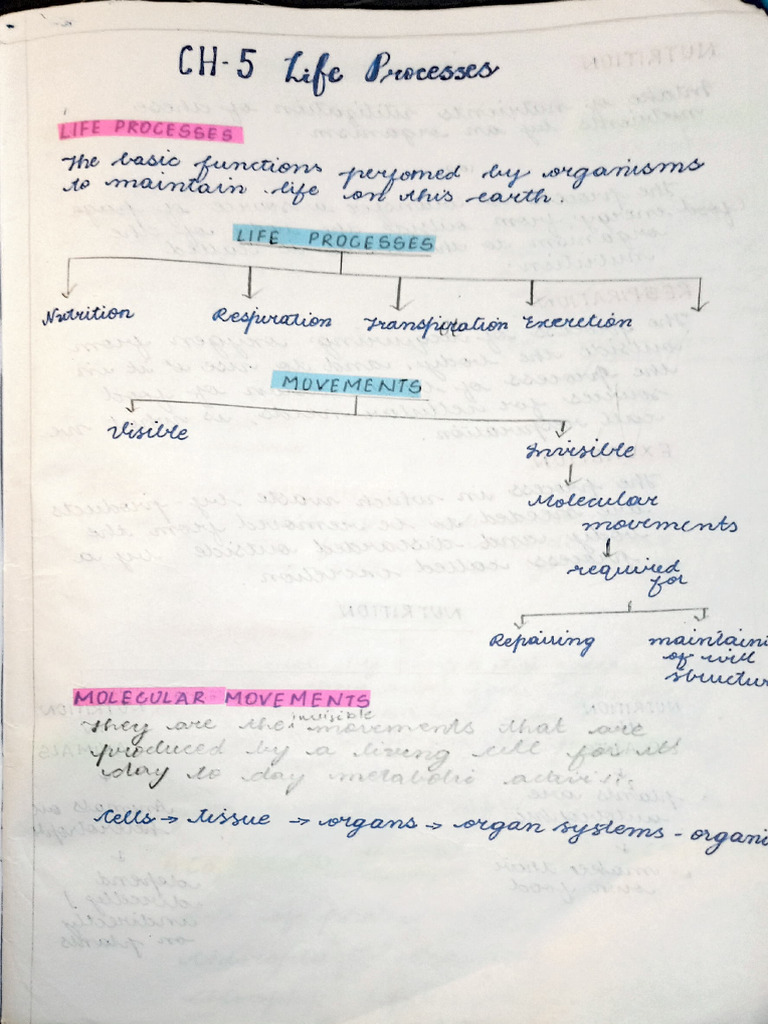 CH-5 Life Processes
LIFE PROCESSES
The basic functions perfomed by organisms
to maintain life on this earth.
LIFE PROCESSES
Nutrition Respiration Transpiration Excretion
MOVEMENTS
Visible
Invisible
Molecular
movements
required
for
Repairing maintaini
of cell
structur
MOLECULAR MOVEMENTS
They are the invisible movements that are
produced by a living cell for its
day to day metabolic
Cells → tissue → organs → organ systems - organi